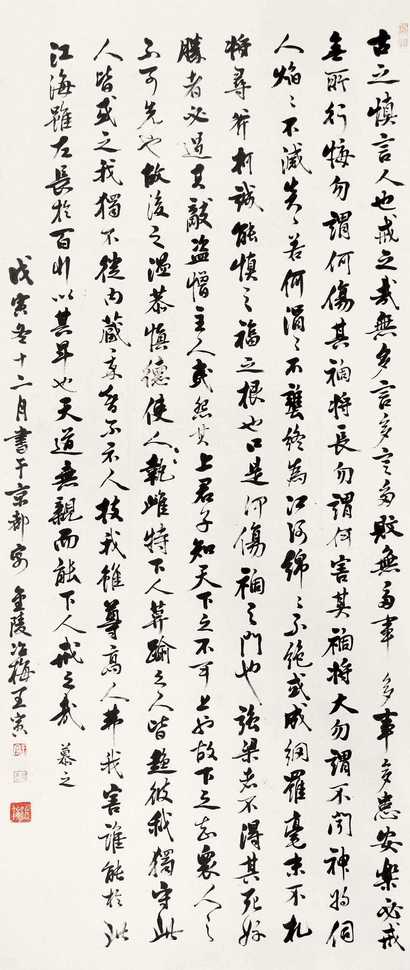 古之慎言人也戒之哉無多言多言多敗無多事多事多患安樂必戒
無所行悔勿謂何傷其禍將長勿謂何害其禍將大勿謂不聞神將伺
人焰〻不滅炎〻若何涓〻不壅終為江河綿〻不絕或成網羅毫末不札
將尋斧柯誠能慎之福之根也口是何傷禍之門也強梁者不得其死好
勝者必遇其敵盜憎主人民怨其上君子知天下之不可上也故下之知眾人之
不可先也故後之溫恭慎德使人執雌持下人莫踰之人皆趨彼我獨守此
人皆或之我獨不徙內藏我智不示人技我雖尊高人弗我害誰能於此
江海雖左長於百川以其卑也天道無親而能下人戒之哉 慕之
戊寅冬十二月書于京都 金陵冶梅王寅